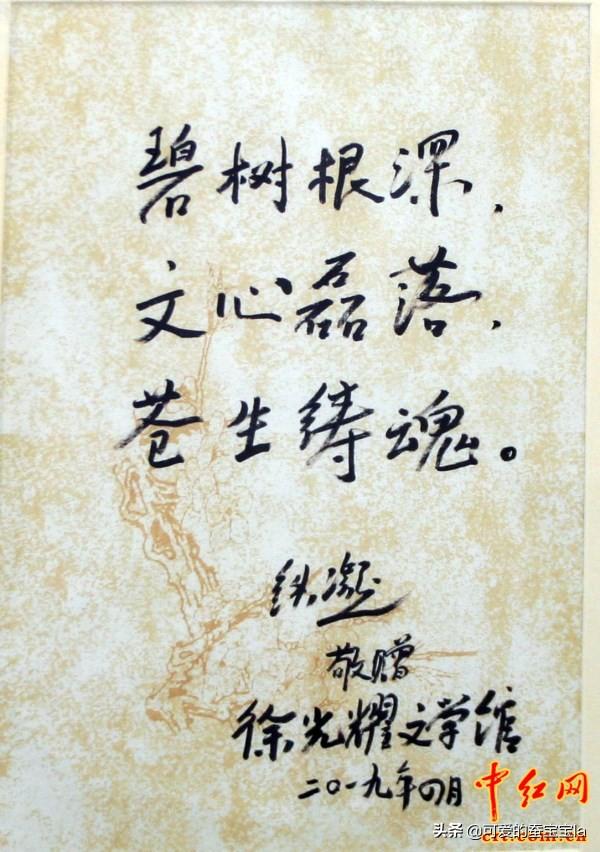 碧树根深,
文心磊落,
苍生铸魂。
铁凝
敬赠
徐光耀文学馆
二〇一九年四月
中红网
crt.com.cn
头条 @可爱的蚕宝宝la